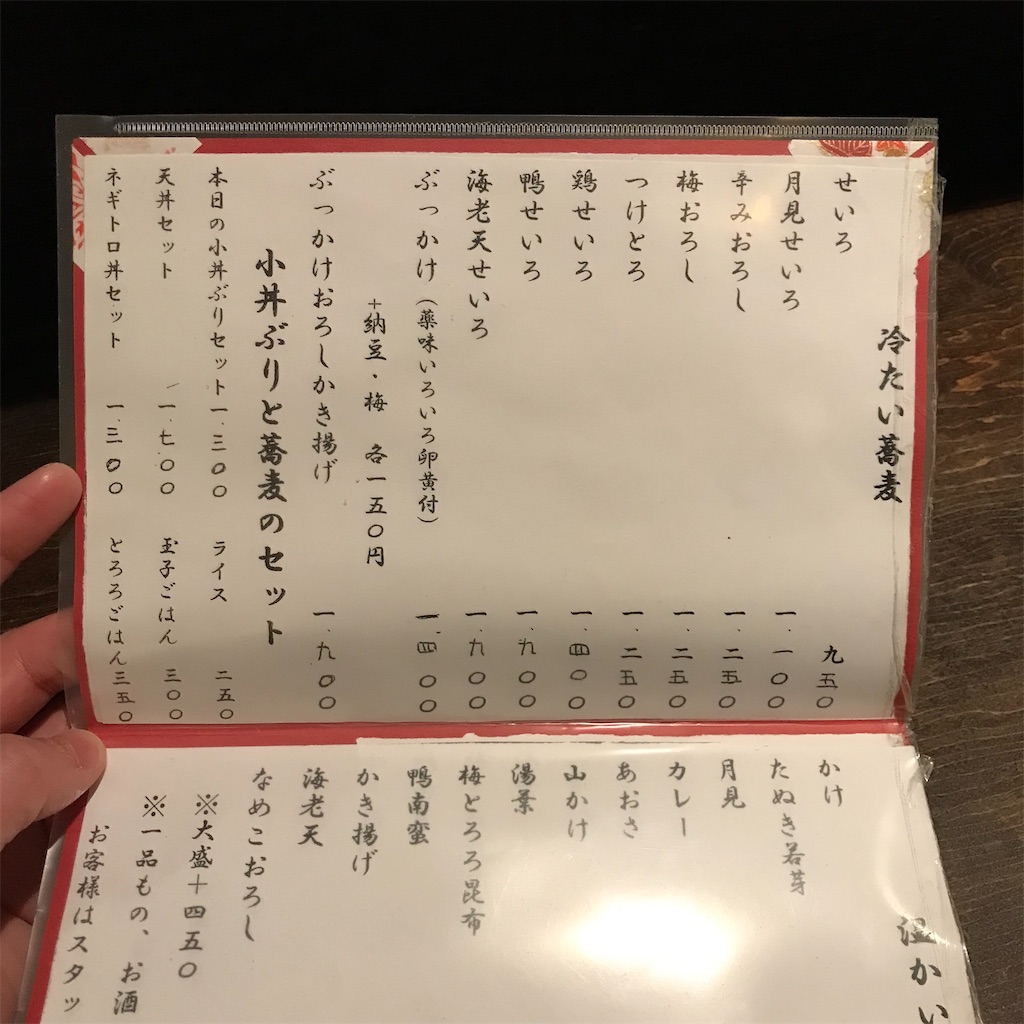 冷たい蕎麦
せいろ 九五〇
月見せいろ 一、一〇〇
辛みおろし 一、二五〇
梅おろし 一、二五〇
つけとろ 一、二五〇
鶏せいろ 一、四〇〇
鴨せいろ 一、九〇〇
海老天せいろ 一、九〇〇
ぶっかけ（薬味いろいろ卵黄付） 一、四〇〇
＋納豆・梅 各一五〇円
ぶっかけおろしかき揚げ 一、九〇〇
小丼ぶりと蕎麦のセット
本日の小丼ぶりセット 一、三〇〇 ライス 二五〇
天丼セット 一、七〇〇 玉子ごはん 三〇〇
ネギトロ丼セット 一、三〇〇 とろろごはん 三五〇
温かい
かけ
たぬき若芽
月見
カレー
あおさ
山かけ
湯葉
梅とろろ昆布
鴨南蛮
かき揚げ
海老天
なめこおろし
※大盛＋四五〇
※一品もの、お酒
お客様はスタッ